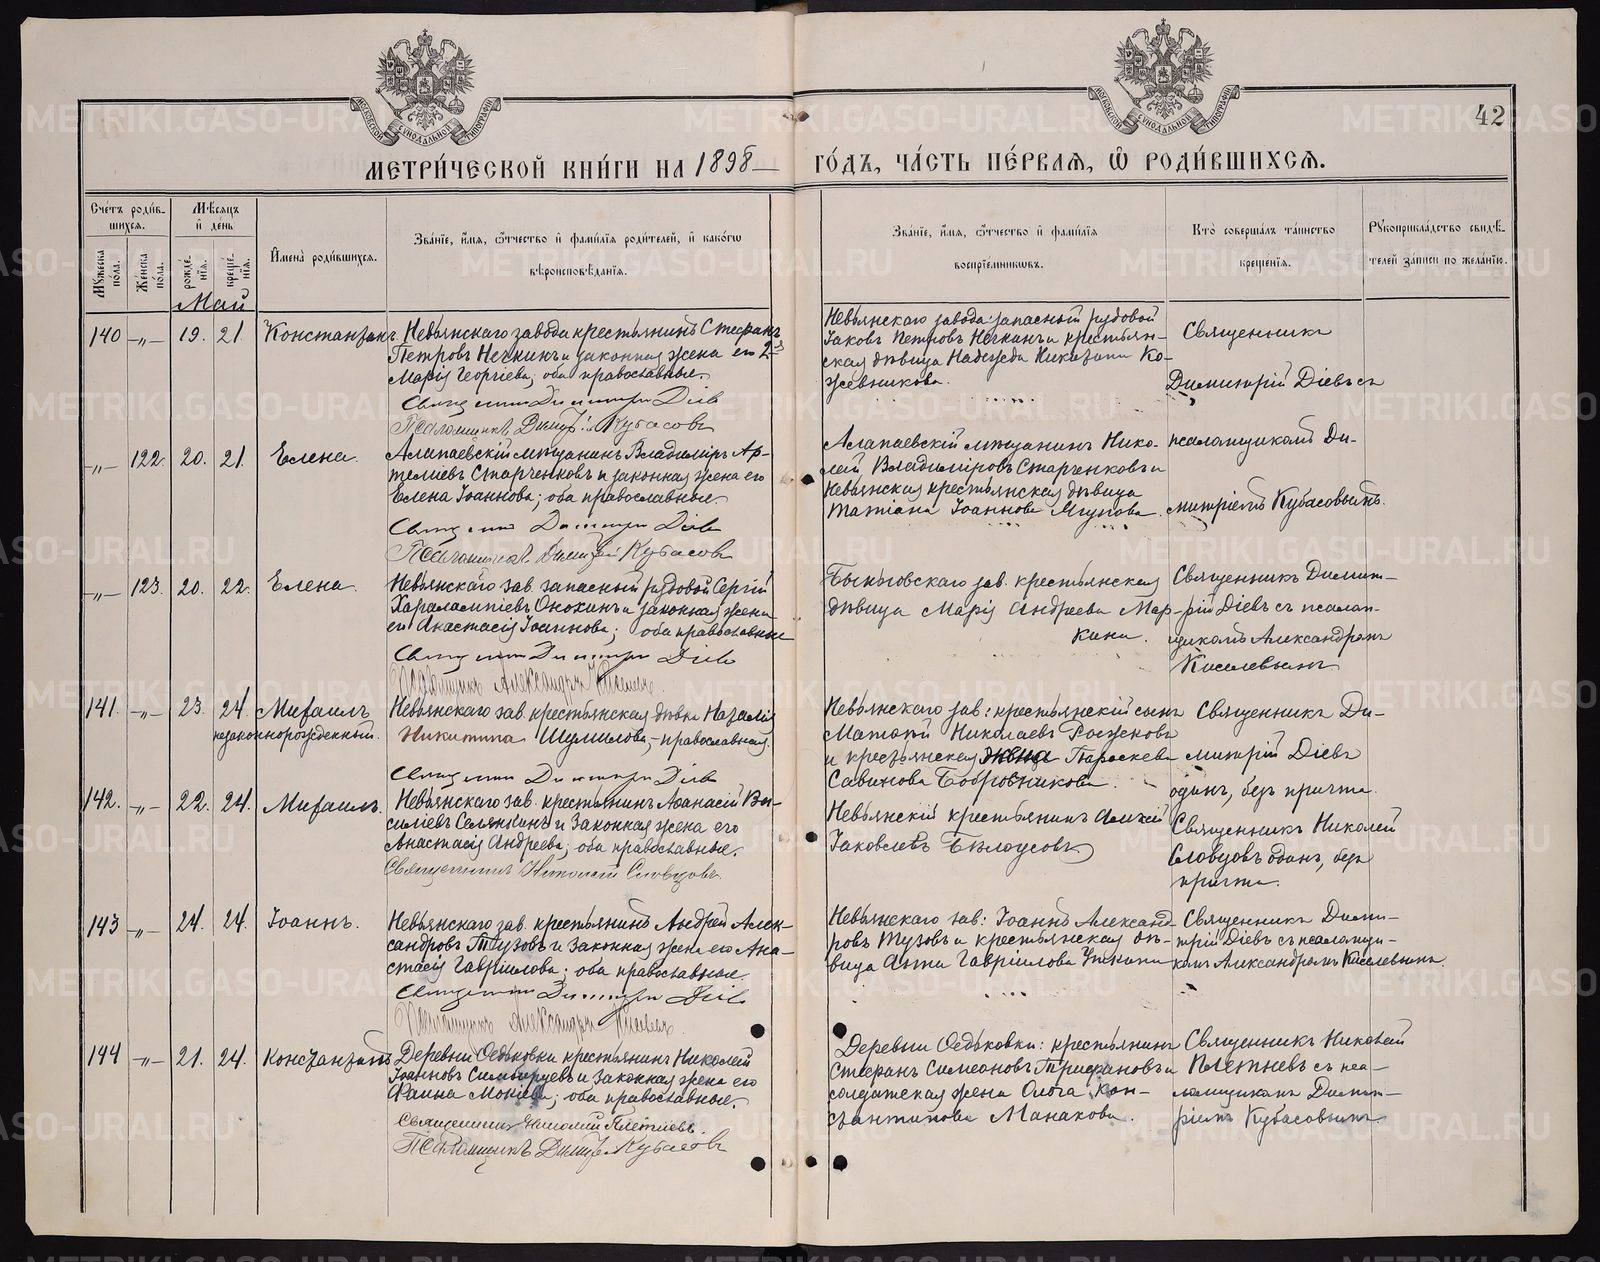 42
МЕТРИ́ЧЕСКОЙ КНИ́ГИ НА 1898 ГО́ДЪ, ЧА́СТЬ ПЕ́РВАЯ, Ѽ РОДИ́ВШИХСЯ.
Сче́тъ роди́в-
шихся.
Му́жеска
пола.
Же́нска
по́ла.
Мѣ́сяцъ
и҆ де́нь
рожде́-
нїя.
креще́-
нїя.
И҆мена̀ роди́вшихся.
Зва́нїе, и҆́мя, ѻ҆́тчество и҆ фами́лїя роди́телей, и҆ како́гѡ
вѣроисповѣ́данїя.
Зва́нїе, и҆́мя, ѻ҆́тчество и҆ фами́лїя
воспрїе́мникѡвъ.
Кто̀ соверша́лъ та́инство
креще́нїя.
Рꙋкоприкла́дство свидѣ́-
телей за́писи по жела́нїю.
Май
140 -„- 19. 21. Константинъ
Невьянскаго завода крестьянинъ Стефанъ
Петровъ и законная жена его 2
Марія Георгіева, оба православные.
Священникъ Димитрій Діевъ
Псаломщикъ Димитр: Кубасовъ
Невьянскаго завода: запасный рядовой
Іаковъ Петровъ и крестьян-
ская дѣвица Надежда Никитина Ко-
жевникова.
Священникъ
Димитрій Діевъ съ
-„- 122. 20. 21. Елена.
Алапаевскій мѣщанинъ Владиміръ Ар-
теміевъ Старченковъ и законная жена его
Елена Іоаннова; оба православные.
Священникъ Димитрій Діевъ
Псаломщикъ Димитрій Кубасовъ
Алапаевскій мѣщанинъ Нико-
лай Владиміровъ Старченковъ и
Невьянская крестьянская дѣвица
Татіана Іоаннова Ягупова.
псаломщикомъ Ди-
митріемъ Кубасовымъ.
-„- 123. 20. 22. Елена.
Невьянскаго зав. запасный рядовой Сергій
Харалампіевъ Онохинъ и законная жена
его Анастасія Іоаннова; оба православные
Священникъ Димитрій Діевъ
Псаломщикъ Александръ Киселевъ.
Быньговскаго зав. крестьянская
дѣвица Марія Андреева Мар-
кина.
Священникъ Димит-
рій Діевъ съ псалом-
щикомъ Александромъ
Киселевымъ
141. -„- 23. 24. Михаилъ
незаконнорожденный.
Невьянскаго зав. крестьянская дѣвка Наталія
Никитина Шумилова, - православная.
Священникъ Димитрій Діевъ
Невьянскаго зав: крестьянскій сынъ
Матѳій Николаевъ Роженовъ
и крестьянская дѣвица Параскева
Савинова Бобровникова.
Священникъ Ди-
митрій Діевъ
одинъ, безъ причта.
142. -„- 22. 24. Михаилъ.
Невьянскаго зав. крестьянинъ Аѳанасій Ва-
силіевъ Селянкинъ и законная жена его
Анастасія Андреева; оба православные.
Священникъ Николай Словцовъ.
Невьянскій крестьянинъ Алексій
Іаковлевъ Бѣлоусовъ
Священникъ Николай
Словцовъ одинъ, безъ
причта.
143 -„- 24. 24. Іоаннъ.
Невьянскаго зав. крестьянинъ Андрей Алек-
сандровъ Тузовъ и законная жена его Ана-
стасія Гавріилова; оба православные
Священникъ Димитрій Діевъ
Псаломщикъ Александръ Киселевъ.
Невьянскаго зав: Іоаннъ Александ-
ровъ Тузовъ и крестьянская дѣ-
вица Анна Гавріилова
Священникъ Димит-
рій Діевъ съ псаломщи-
комъ Александромъ Киселевымъ.
144 -„- 21. 24. Константинъ
Деревни Ѳедьковки крестьянинъ Николай
Іоанновъ и законная жена его
Фаина; оба православные.
Священникъ Николай Плетневъ.
Псаломщикъ Димитр. Кубасовъ
Деревни Ѳедьковки: крестьянинъ
Стефанъ Симеоновъ Трифановъ и
солдатская жена Ольга Кон-
стантинова Манакова.
Священникъ Николай
Плетневъ съ пса-
ломщикомъ Димит-
ріемъ Кубасовымъ.
METRIKI.GASO-URAL.RU